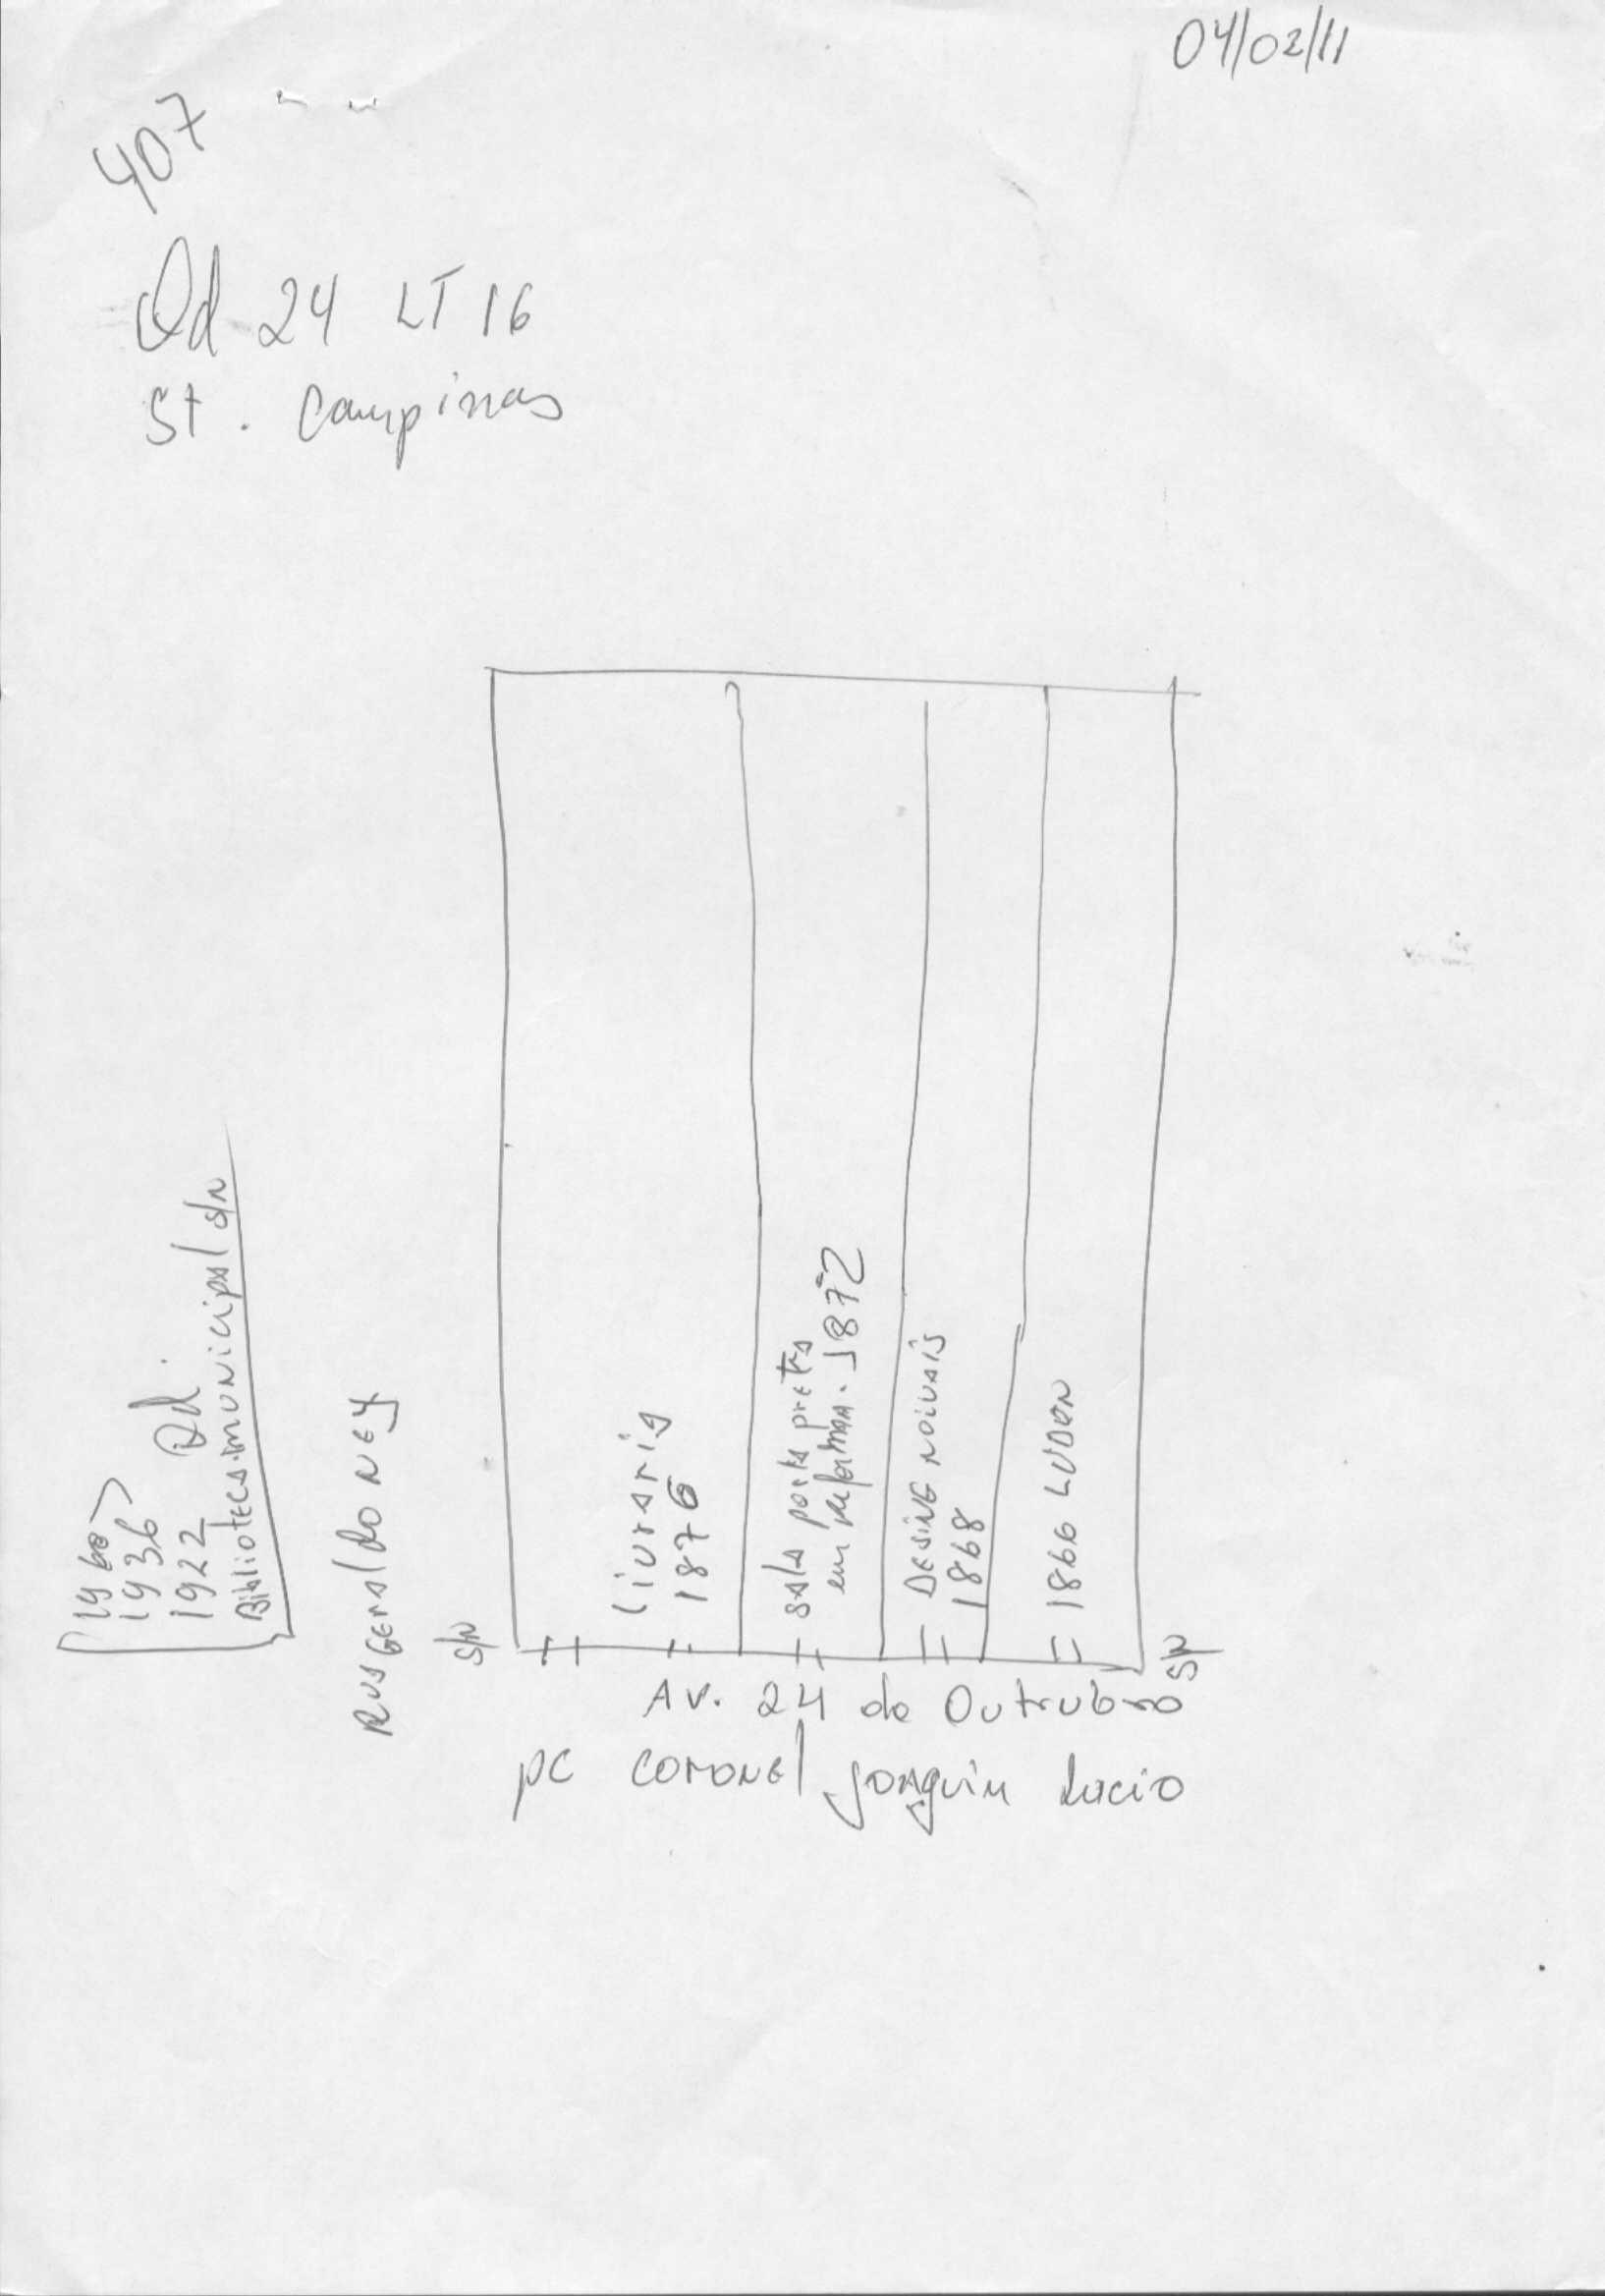 04/02/11
407
Qd 24 LT 16
St. Campinas
1936
1922 Qd.
Biblioteca municipal s/n
Rua Geraldo Ney
S/N
livraria
1876
sala porta preta
em reforma. 1872
DESINE NOIVAIS
1868
1866 LUDON
S/N
Av. 24 de Outrubro
pc coronel joaquim Lucio